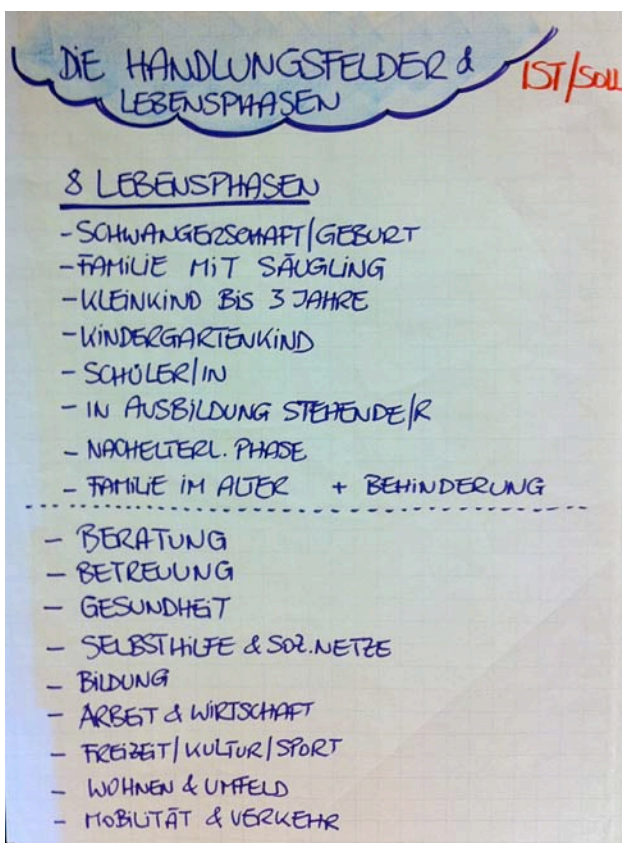 DIE HANDLUNGSFELDER &
LEBENSPHASEN
IST/SOLL
8 LEBENSPHASEN
- SCHWANGERSCHAFT/GEBURT
- FAMILIE MIT SÄUGLING
- KLEINKIND BIS 3 JAHRE
- KINDERGARTENKIND
- SCHÜLER/IN
- IN AUSBILDUNG STEHENDE/R
- NACHELTERL. PHASE
- FAMILIE IM ALTER + BEHINDERUNG
- BERATUNG
- BETREUUNG
- GESUNDHEIT
- SELBSTHILFE & SOZ. NETZE
- BILDUNG
- ARBEIT & WIRTSCHAFT
- FREIZEIT/KULTUR/SPORT
- WOHNEN & UMFELD
- MOBILITÄT & VERKEHR